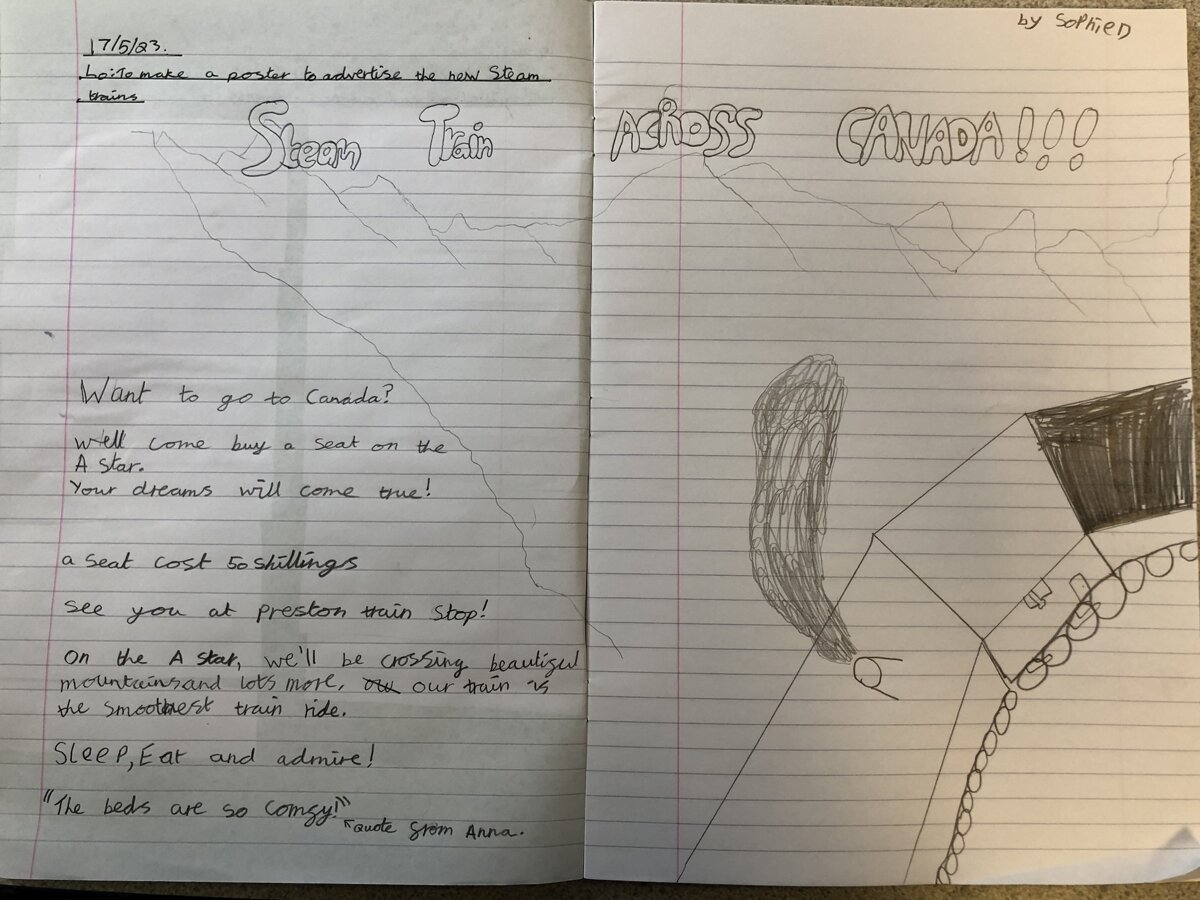 by Sophie D
17/5/23.
Lo: To make a poster to advertise the new Steam
trains
Steam Train ACROSS CANADA!!!
Want to go to Canada?
Well come buy a seat on the
A star.
Your dreams will come true!
a seat cost 50 shillings
see you at preston train stop!
On the A star, we'll be crossing beautiful
mountains and lots more, our train is
the smoothest train ride.
Sleep, Eat and admire!
"The beds are so comfy!"
quote from Anna.